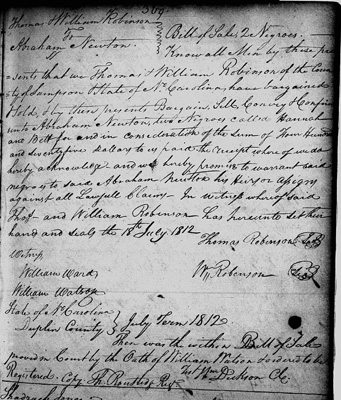 309
Thomas & William Robinson
To
Abraham Newton
Bill of Sale 2 Negroes
Know all Men by these pre
sents that we Thomas & William Robinson of the Coun
ty of Sampson State of No. Carolina, have bargained
Sold, & by these presents Bargain, Sell, Convey & Confirm
unto Abraham Newton two Negroes called Hannah
and Bett for and in consideration of the sum of Hundred
and seventy five dollars to us paid the receipt whereof we do
hereby acknowledge and we hereby promise to warrant said
negroes to said Abraham Newton his Heirs or Assigns
against all Lawfull Claims. In witness whereof said
Thos. and William Robinson has hereunto set their
hand and seals the 18th July 1812
Thomas Robinson Seal
Witness
Wm Robenson Seal
William Ward
William Watson
State of No. Carolina
Duplin County
July Term 1812
Then was the within Bill of Sale
proved in Court by the Oath of William Watson & ordered to be
Registered. Copy Regr
Test Wm Dickson Clk